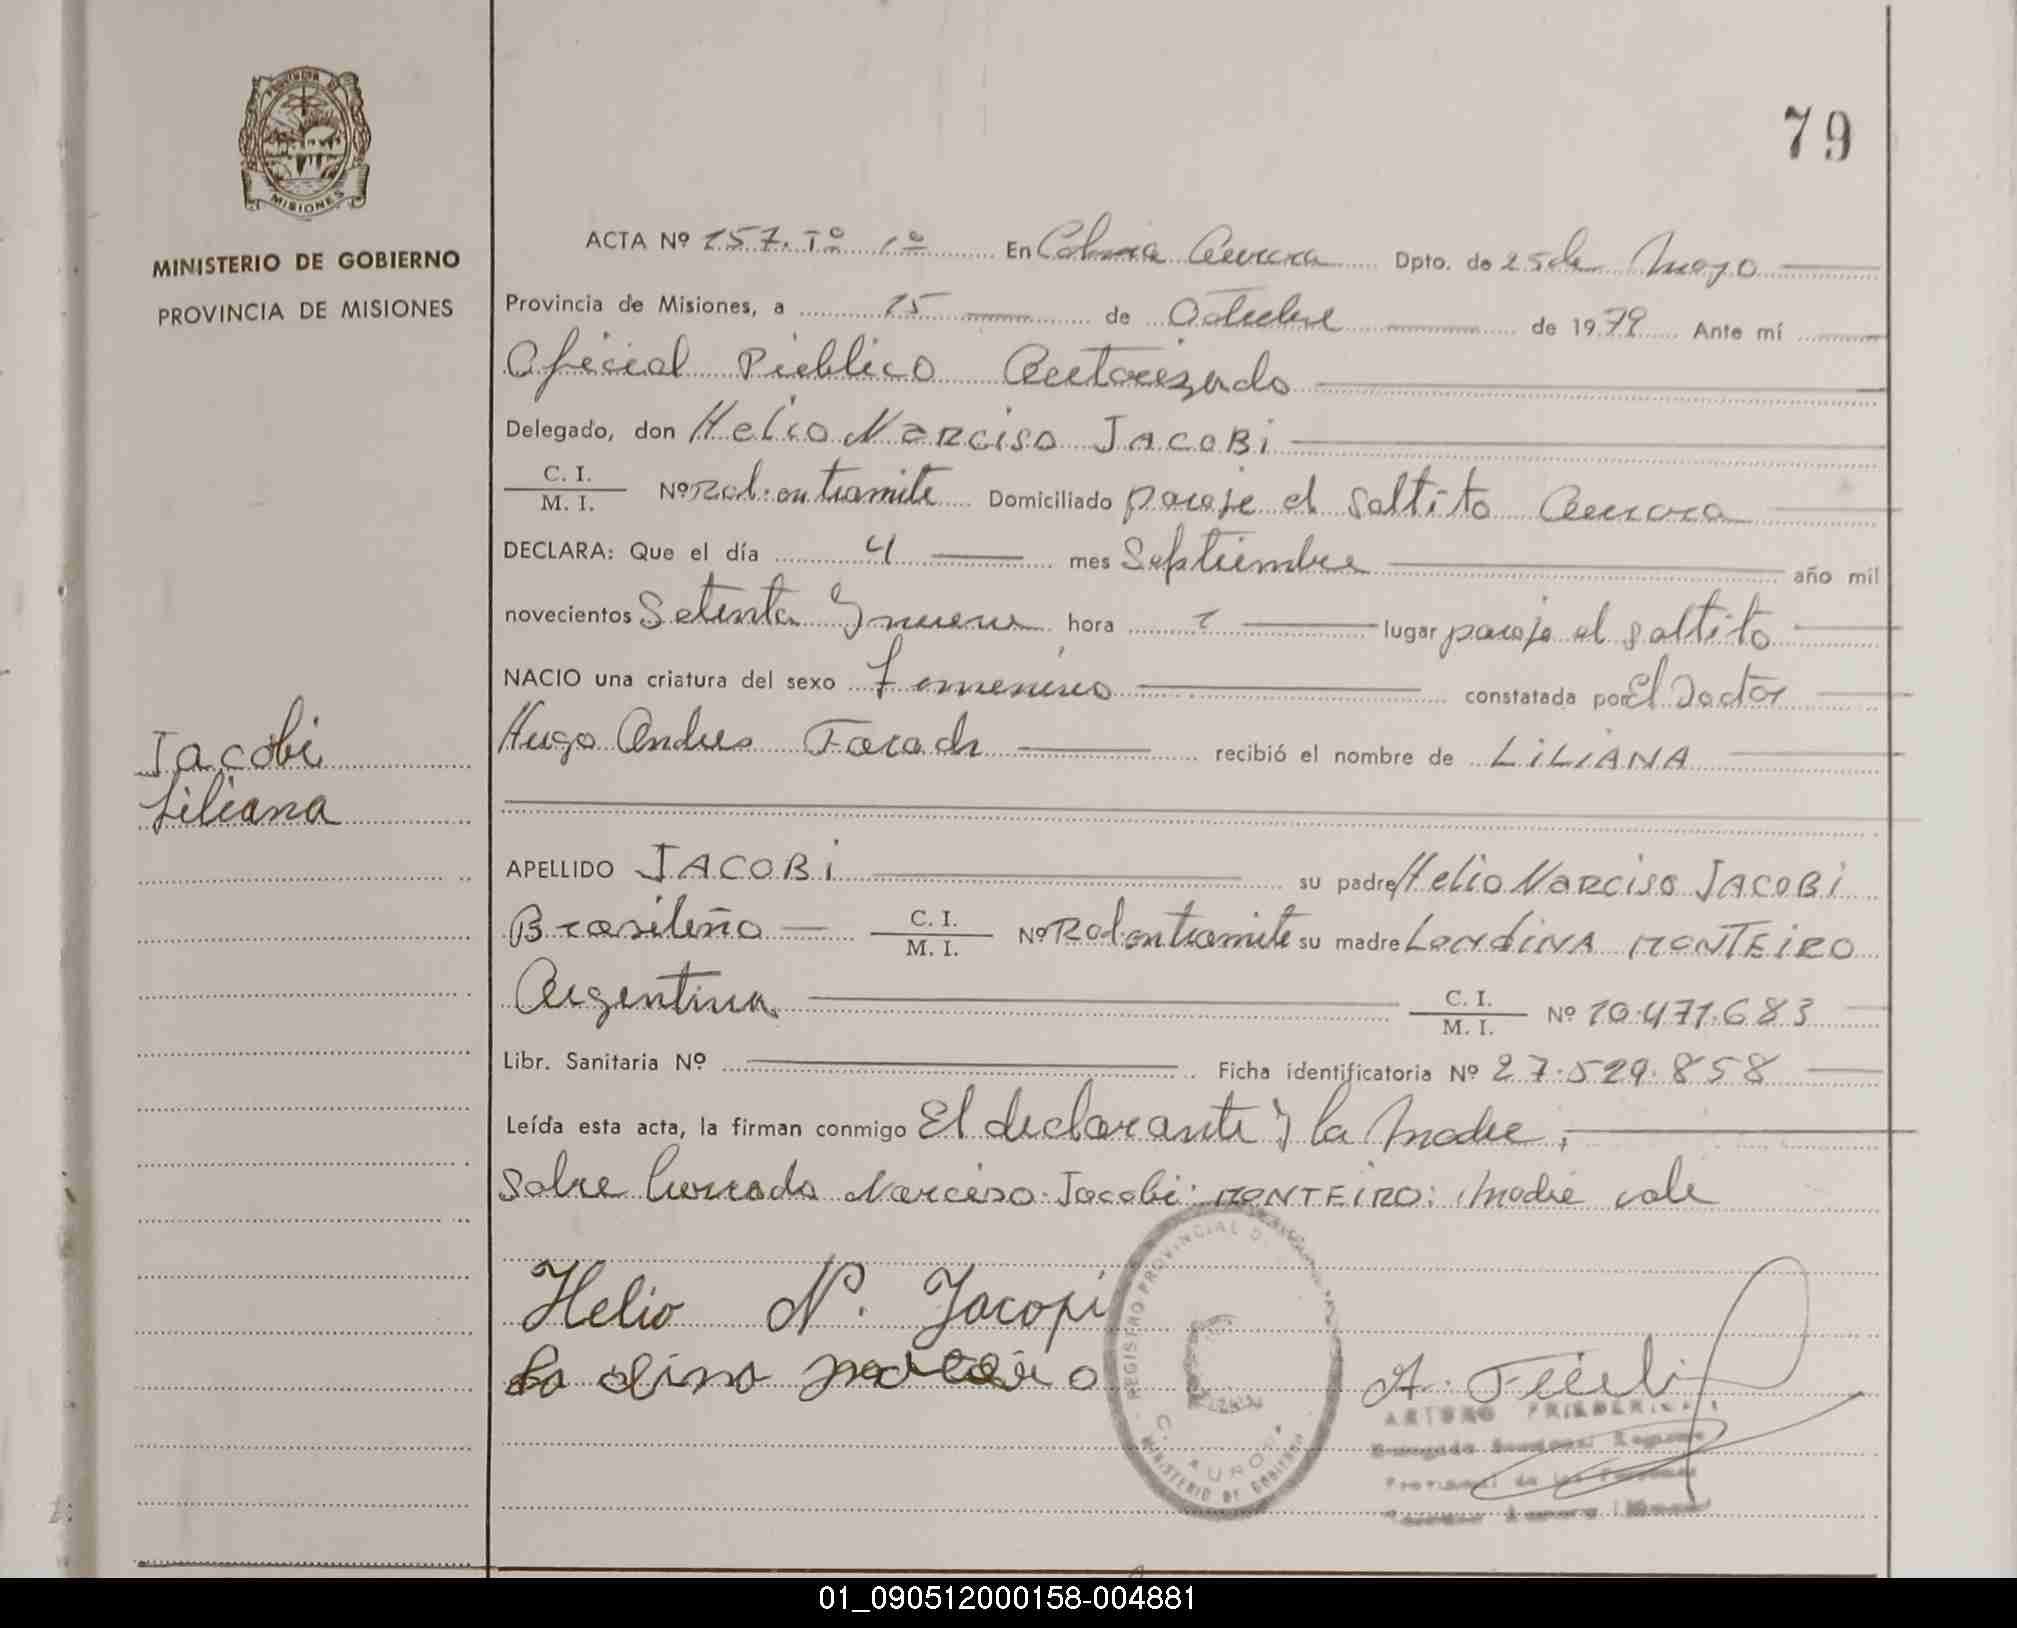 79
PROVINCIA DE
MISIONES
MINISTERIO DE GOBIERNO
PROVINCIA DE MISIONES
ACTA Nº 157. Tº 1º En Colonia Aurora Dpto. de 25 de Mayo
Provincia de Misiones, a 15 de Octubre de 1979 Ante mí
Oficial Público Autorizado
Delegado, don Helio Narciso JACOBi
C. I.
M. I. Nº Rad. en tramite Domiciliado paraje el Saltito Aurora
DECLARA: Que el día 4 mes Septiembre año mil
novecientos Setenta y nueve hora 1 lugar paraje el saltito
NACIO una criatura del sexo femenino constatada por El Doctor
Hugo Andres Farach recibió el nombre de LiLiANA
Jacobi
Liliana
APELLIDO JACOBi su padre Helio Narciso JACOBi
Brasileño C. I.
M. I. Nº Rad en tramite su madre LandiNA MONTEiRO
Argentina C. I.
M. I. Nº 10.471.683
Libr. Sanitaria Nº Ficha identificatoria Nº 27.529.858
Leída esta acta, la firman conmigo El declarante y la Madre,
Sobre borrado Narciso: Jacobi: MONTEiRO: Madre vale
Helio N. Jacopi
REGISTRO PROVINCIAL D
C. AURORA
MINISTERIO DE GOBIERNO
ARTURO
01_090512000158-004881